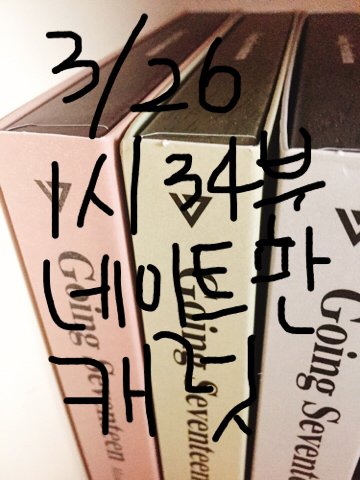 3/26
1시 34분
네이트판
Going Seventeen
Going Seventeen
Going Seventeen